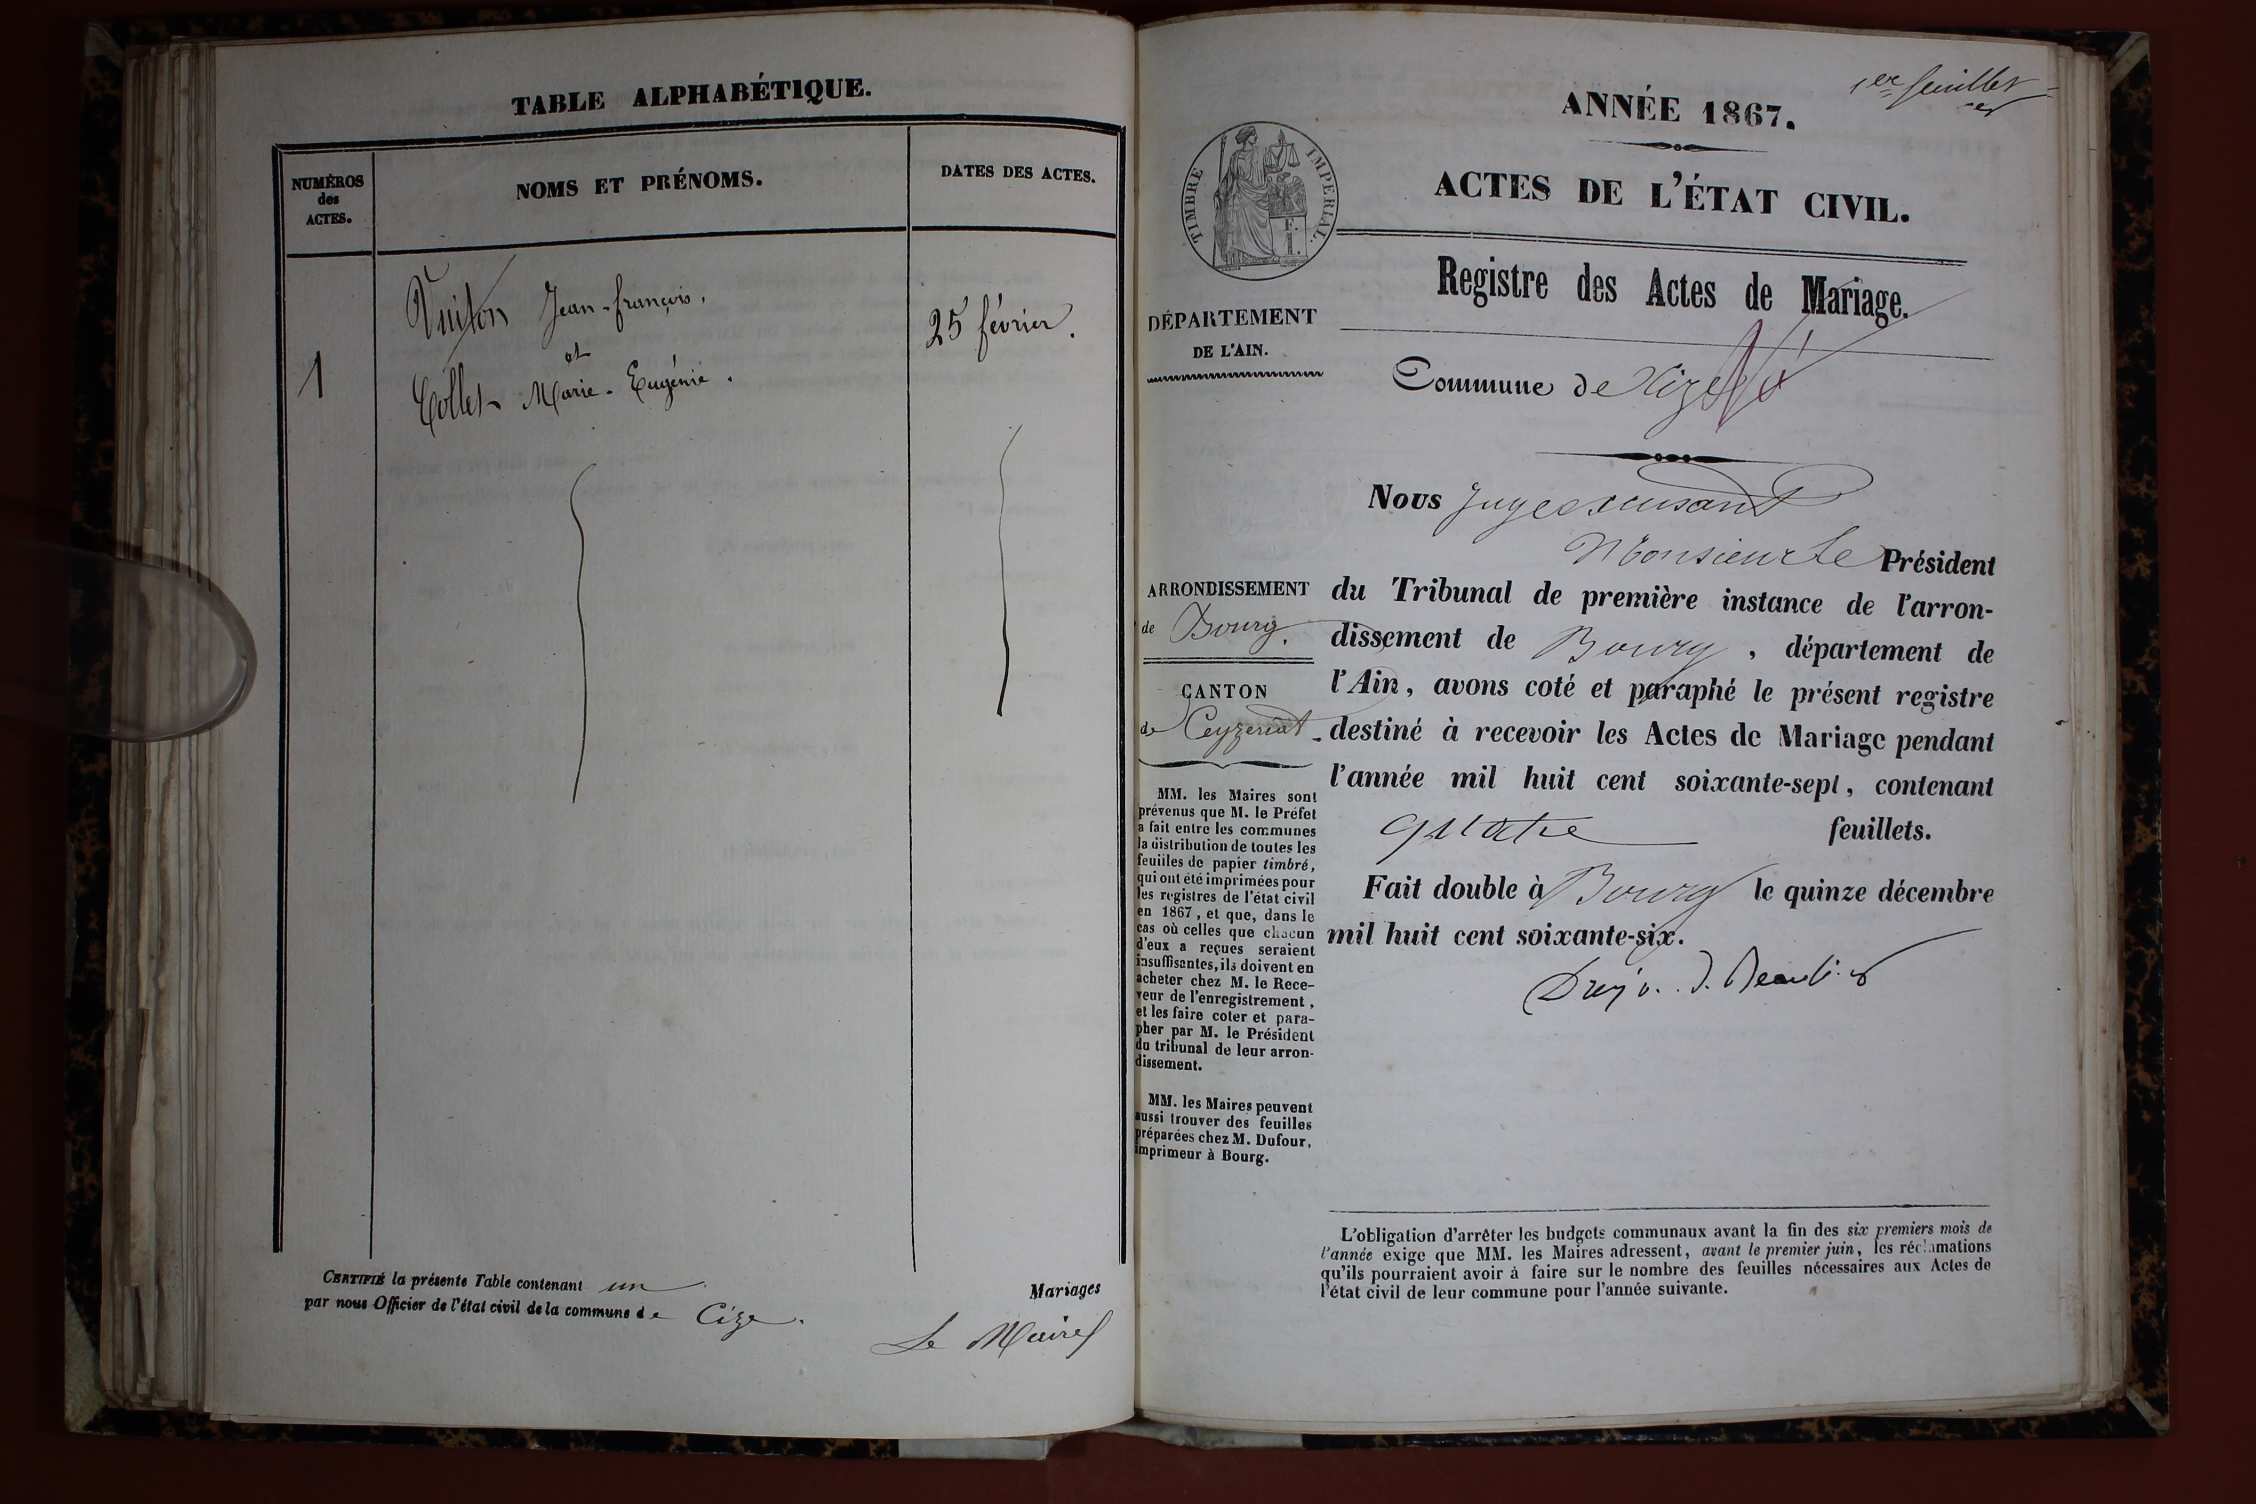 TABLE ALPHABÉTIQUE.
NUMÉROS
des
ACTES.
NOMS ET PRÉNOMS.
DATES DES ACTES.
1
Vuiton Jean-françois.
et
Collet Marie-Eugénie.
25 février.
CERTIFIÉ la présente Table contenant un
Mariages
par nous Officier de l'état civil de la commune de Cize.
Le Maire
1er feuillet
ANNÉE 1867.
ACTES DE L'ÉTAT CIVIL.
TIMBRE IMPERIAL.
Registre des Actes de Mariage.
DÉPARTEMENT
DE L'AIN.
Commune de Cize
Nous Juge
Monsieur Le Président
du Tribunal de première instance de l'arron-
dissement de Bourg, département de
l'Ain, avons coté et paraphé le présent registre
destiné à recevoir les Actes de Mariage pendant
l'année mil huit cent soixante-sept, contenant
quatre feuillets.
Fait double à Bourg le quinze décembre
mil huit cent soixante-six.
ARRONDISSEMENT
de Bourg.
CANTON
de Ceyzériat
MM. les Maires sont
prévenus que M. le Préfet
a fait entre les communes
la distribution de toutes les
feuilles de papier timbré,
qui ont été imprimées pour
les registres de l'état civil
en 1867, et que, dans le
cas où celles que chacun
d'eux a reçues seraient
insuffisantes, ils doivent en
acheter chez M. le Rece-
veur de l'enregistrement,
et les faire coter et para-
pher par M. le Président
du tribunal de leur arron-
dissement.
MM. les Maires peuvent
aussi trouver des feuilles
préparées chez M. Dufour,
imprimeur à Bourg.
L'obligation d'arrêter les budgets communaux avant la fin des six premiers mois de
l'année exige que MM. les Maires adressent, avant le premier juin, les réclamations
qu'ils pourraient avoir à faire sur le nombre des feuilles nécessaires aux Actes de
l'état civil de leur commune pour l'année suivante.